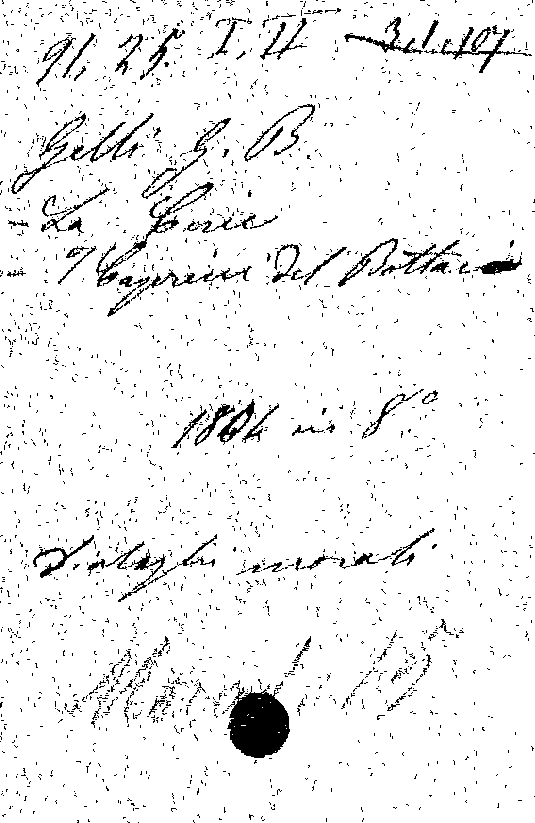 91, 25. I, II 3.d.107
Gelli G. B.
- La Circe
- I Capricci del Bottaio
1804 in 8°
Dialoghi morali